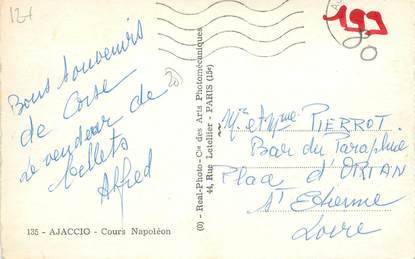 199
20
Bons souvenirs
de Corse
le vendeur de
billets
Alfred
135 - AJACCIO - Cours Napoléon
(O) - Real-Photo-Cie des Arts Photomécaniques
44, Rue Letellier - PARIS (15e)
Mr et Mme PIERROT
Bar du Parapluie
Place d'ORIAN
St Etienne
Loire